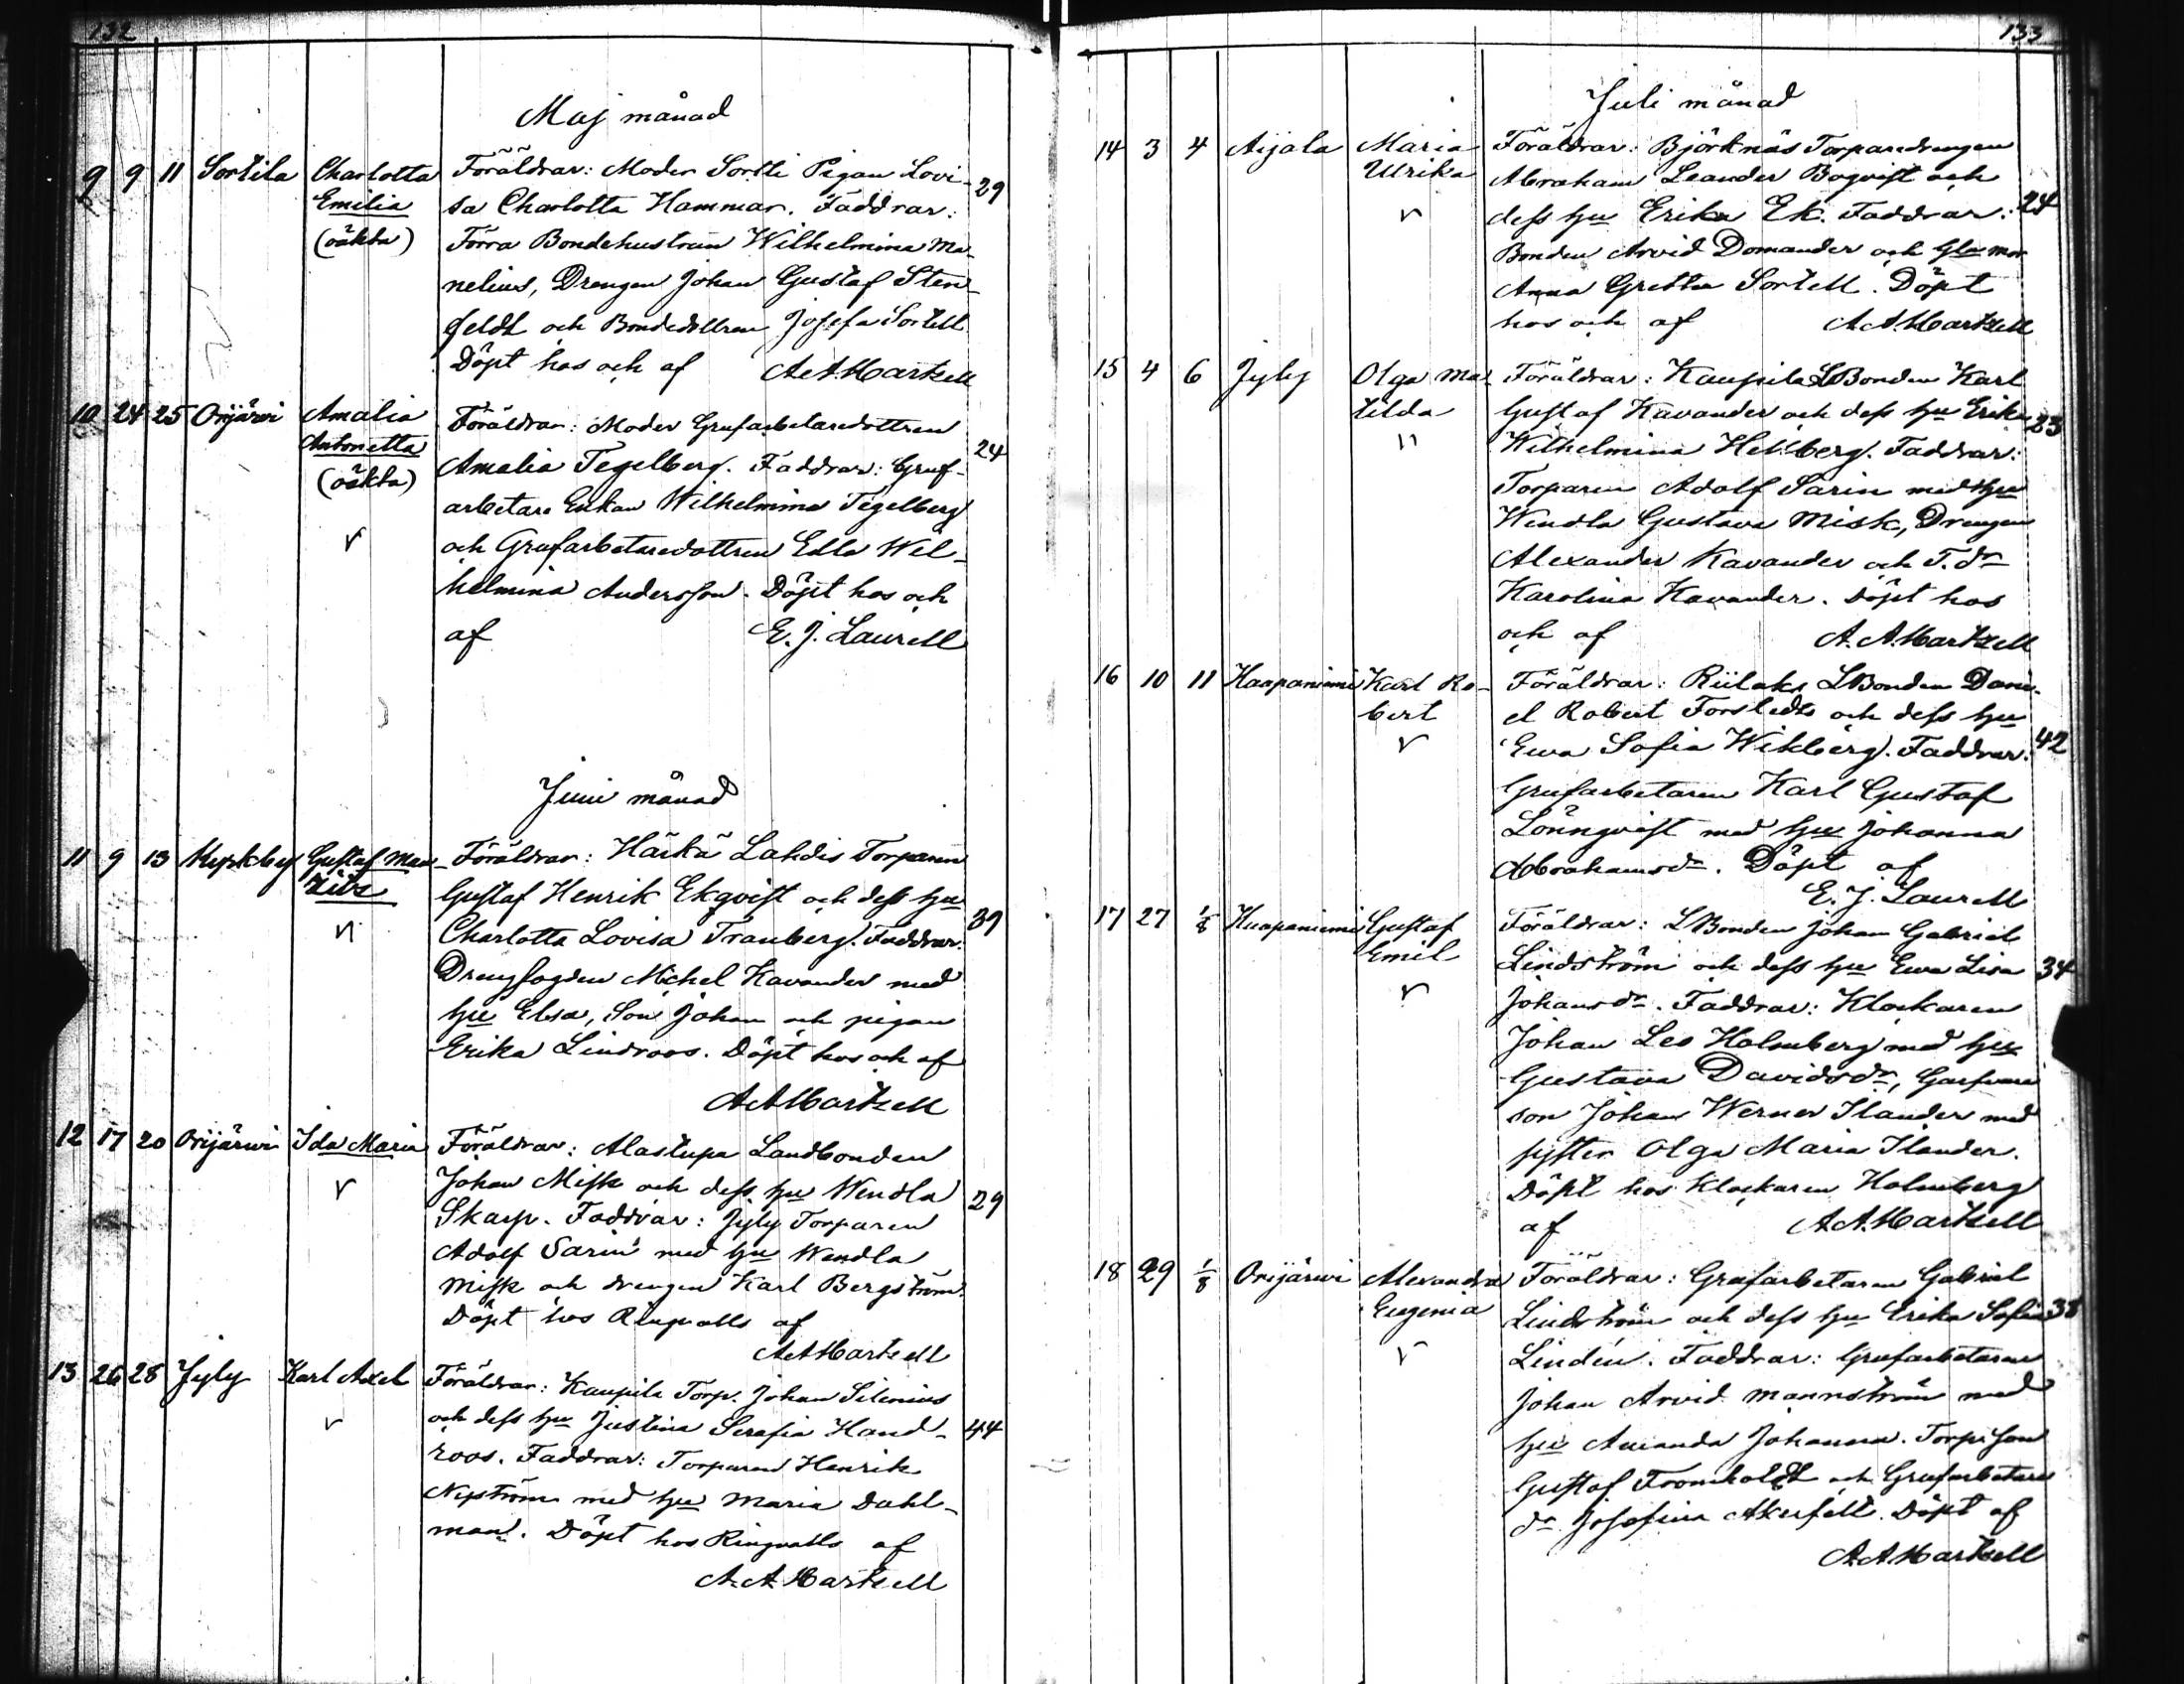 132
Maj månad
9 9 11 Sortila Charlotta Föräldrar: Moder Sortti Pigan Lovi-
Emilia sa Charlotta Hammar. Faddrar: 29
(oäkta) Förra Bondehustrun Wilhelmina Ma-
nelius, Drengen Johan Gustaf Sten-
feldt och Bondedottren Josefa Sortell
Döpt hos och af A A Martzell
10 24 25 Orijärvi Amalia Föräldrar: Moder Grufarbetaredottren
Antonetta Amalia Tegelberg. Faddrar: Gruf- 24
(oäkta) arbetare Enkan Wilhelmina Tegelberg
och Grufarbetaredottren Edla Wil-
helmina Andersson. Döpt hos och
af E. J. Laurell
Juni månad
11 9 13 Kyrkby Gustaf Mau- Föräldrar: Härkä Lahdis Torparen
ritz Gustaf Henrik Ekqvist och dess hu
Charlotta Lovisa Tranberg. Faddrar: 39
Drengfogden Michel Kavander med
hu Elsa, Son Johan och pigan
Erika Lindroos. Döpt hos och af
A A Martzell
12 17 20 Orijärwi Ida Maria Föräldrar: Alastupa Landbonden
Johan Misk och dess hu Wendla 29
Skarp. Faddrar: Jyly Torparen
Adolf Sarin med hu Wendla
Misk och drengen Karl Bergström.
Döpt hos Ringvalls af
A A Martzell
13 26 28 Jyly Karl Axel Föräldrar: Kaupila Torp. Johan Silenius
och dess hu Justina Serafia Hand- 44
roos. Faddrar: Torparen Henrik
Nyström med hu Maria Dahl-
man. Döpt hos Ringvalls af
A. A Martzell
133
Juli månad
14 3 4 Aijala Maria Föräldrar: Björknäs Torparedrengen
Ulrika Abraham Leander Boqvist och
dess hu Erika Ek. Faddrar: 24
Bonden Arvid Domander och Gla mor
Anna Gretha Sortell. Döpt
hos och af A A Martzell
15 4 6 Jyly Olga Ma- Föräldrar: Kaupila LBonden Karl
tilda Gustaf Kavander och dess hu Erika 23
Wilhelmina Hellberg. Faddrar:
Torparen Adolf Sarin med hu
Wendla Gustava Misk, Drengen
Alexander Kavander och T. dr
Karolina Kavander. Döpt hos
och af A. A. Martzell
16 10 11 Haapaniemi Karl Ro- Föräldrar: Riilaks LBonden Dani-
bert el Robert Forstedt och dess hu
Ewa Sofia Wikberg. Faddrar: 42
Grufarbetaren Karl Gustaf
Lönnqvist med hu Johanna
Abrahamsdr. Döpt af
E. J. Laurell
17 27 1/8 Haapaniemi Gustaf Föräldrar: LBonden Johan Gabriel
Emil Lindström och dess hu Ewa Lisa 34
Johansdr. Faddrar: Klockaren
Johan Leo Holmberg med hu
Gustava Davidsdr, Garfvare
son Johan Werner Ilander med
syster Olga Maria Ilander.
Döpt hos Klockaren Holmberg
af A A. Martzell
18 29 1/8 Orijärwi Alexandra Föräldrar: Grufarbetaren Gabriel
Eugenia Lindström och dess hu Erika Sofia 38
Lindén. Faddrar: Grufarbetaren
Johan Arvid Mannström med
hu Amanda Johanna. Torp. son
Gustaf Fromholdt och Grufarbetare
dr Josefina Åkerfelt. Döpt af
A A Martzell